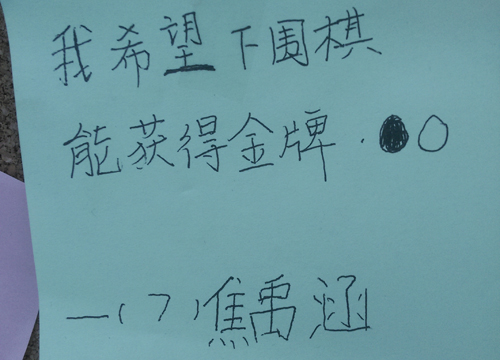 我希望下围棋
能获得金牌.
一(7)焦禹涵